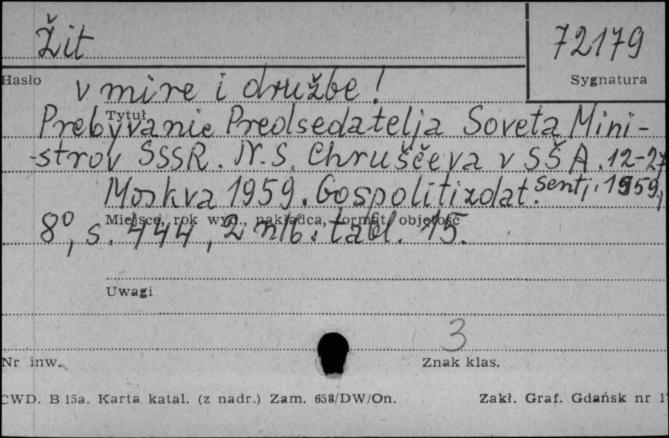 Žit
72179
Hasło
Sygnatura
v mire i družbe!
Tytuł
Prebyvanie Predsedatelja Soveta Mini-
strov SSSR. N.S. Chruščeva v SŠA. 12-27
sentj. 1959,
Moskva 1959. Gospolitizdat.
Miejsce, rok wyd., nakładca, format, objętość
8º, s. 444, 2 nlb. tabl. 15.
Uwagi
3
Nr inw.
Znak klas.
CWD. B 15a. Karta katal. (z nadr.) Zam. 658/DW/On.
Zakł. Graf. Gdańsk nr 1